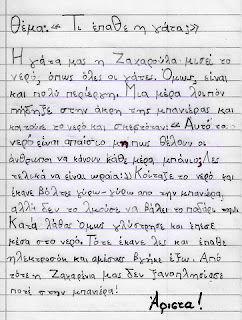 Θέμα: « Τι έπαθε η γάτα;»
Η γάτα μας η Ζαχαρούλα μισεί το
νερό, όπως όλες οι γάτες. Όμως, είναι
και πολύ περίεργη. Μια μέρα λοιπόν
πήδηξε στην άκρη της μπανιέρας και
κοιτούσε το νερό και σκεφτόταν: «Αυτό το
νερό είναι απαίσιο μα πως θέλουν οι
άνθρωποι να κάνουν κάθε μέρα μπάνιο; λες
τελικά να είναι ωραία;» Κοίταξε το νερό και
έκανε βόλτες γύρω-γύρω από την μπανιέρα,
αλλά δεν το λιμούσε να βάλει το ποδάρι της.
Κατά λάθος όμως γλύστρησε και έπεσε
μέσα στο νερό. Τότε έκανε λες και έπαθε
ηλεκτροσόκ και αμέσως βγήκε έξω. Από
τότε η Ζαχαρένια μας δεν ξαναπλησίασε
ποτέ στην μπανιέρα!
Άριστα!